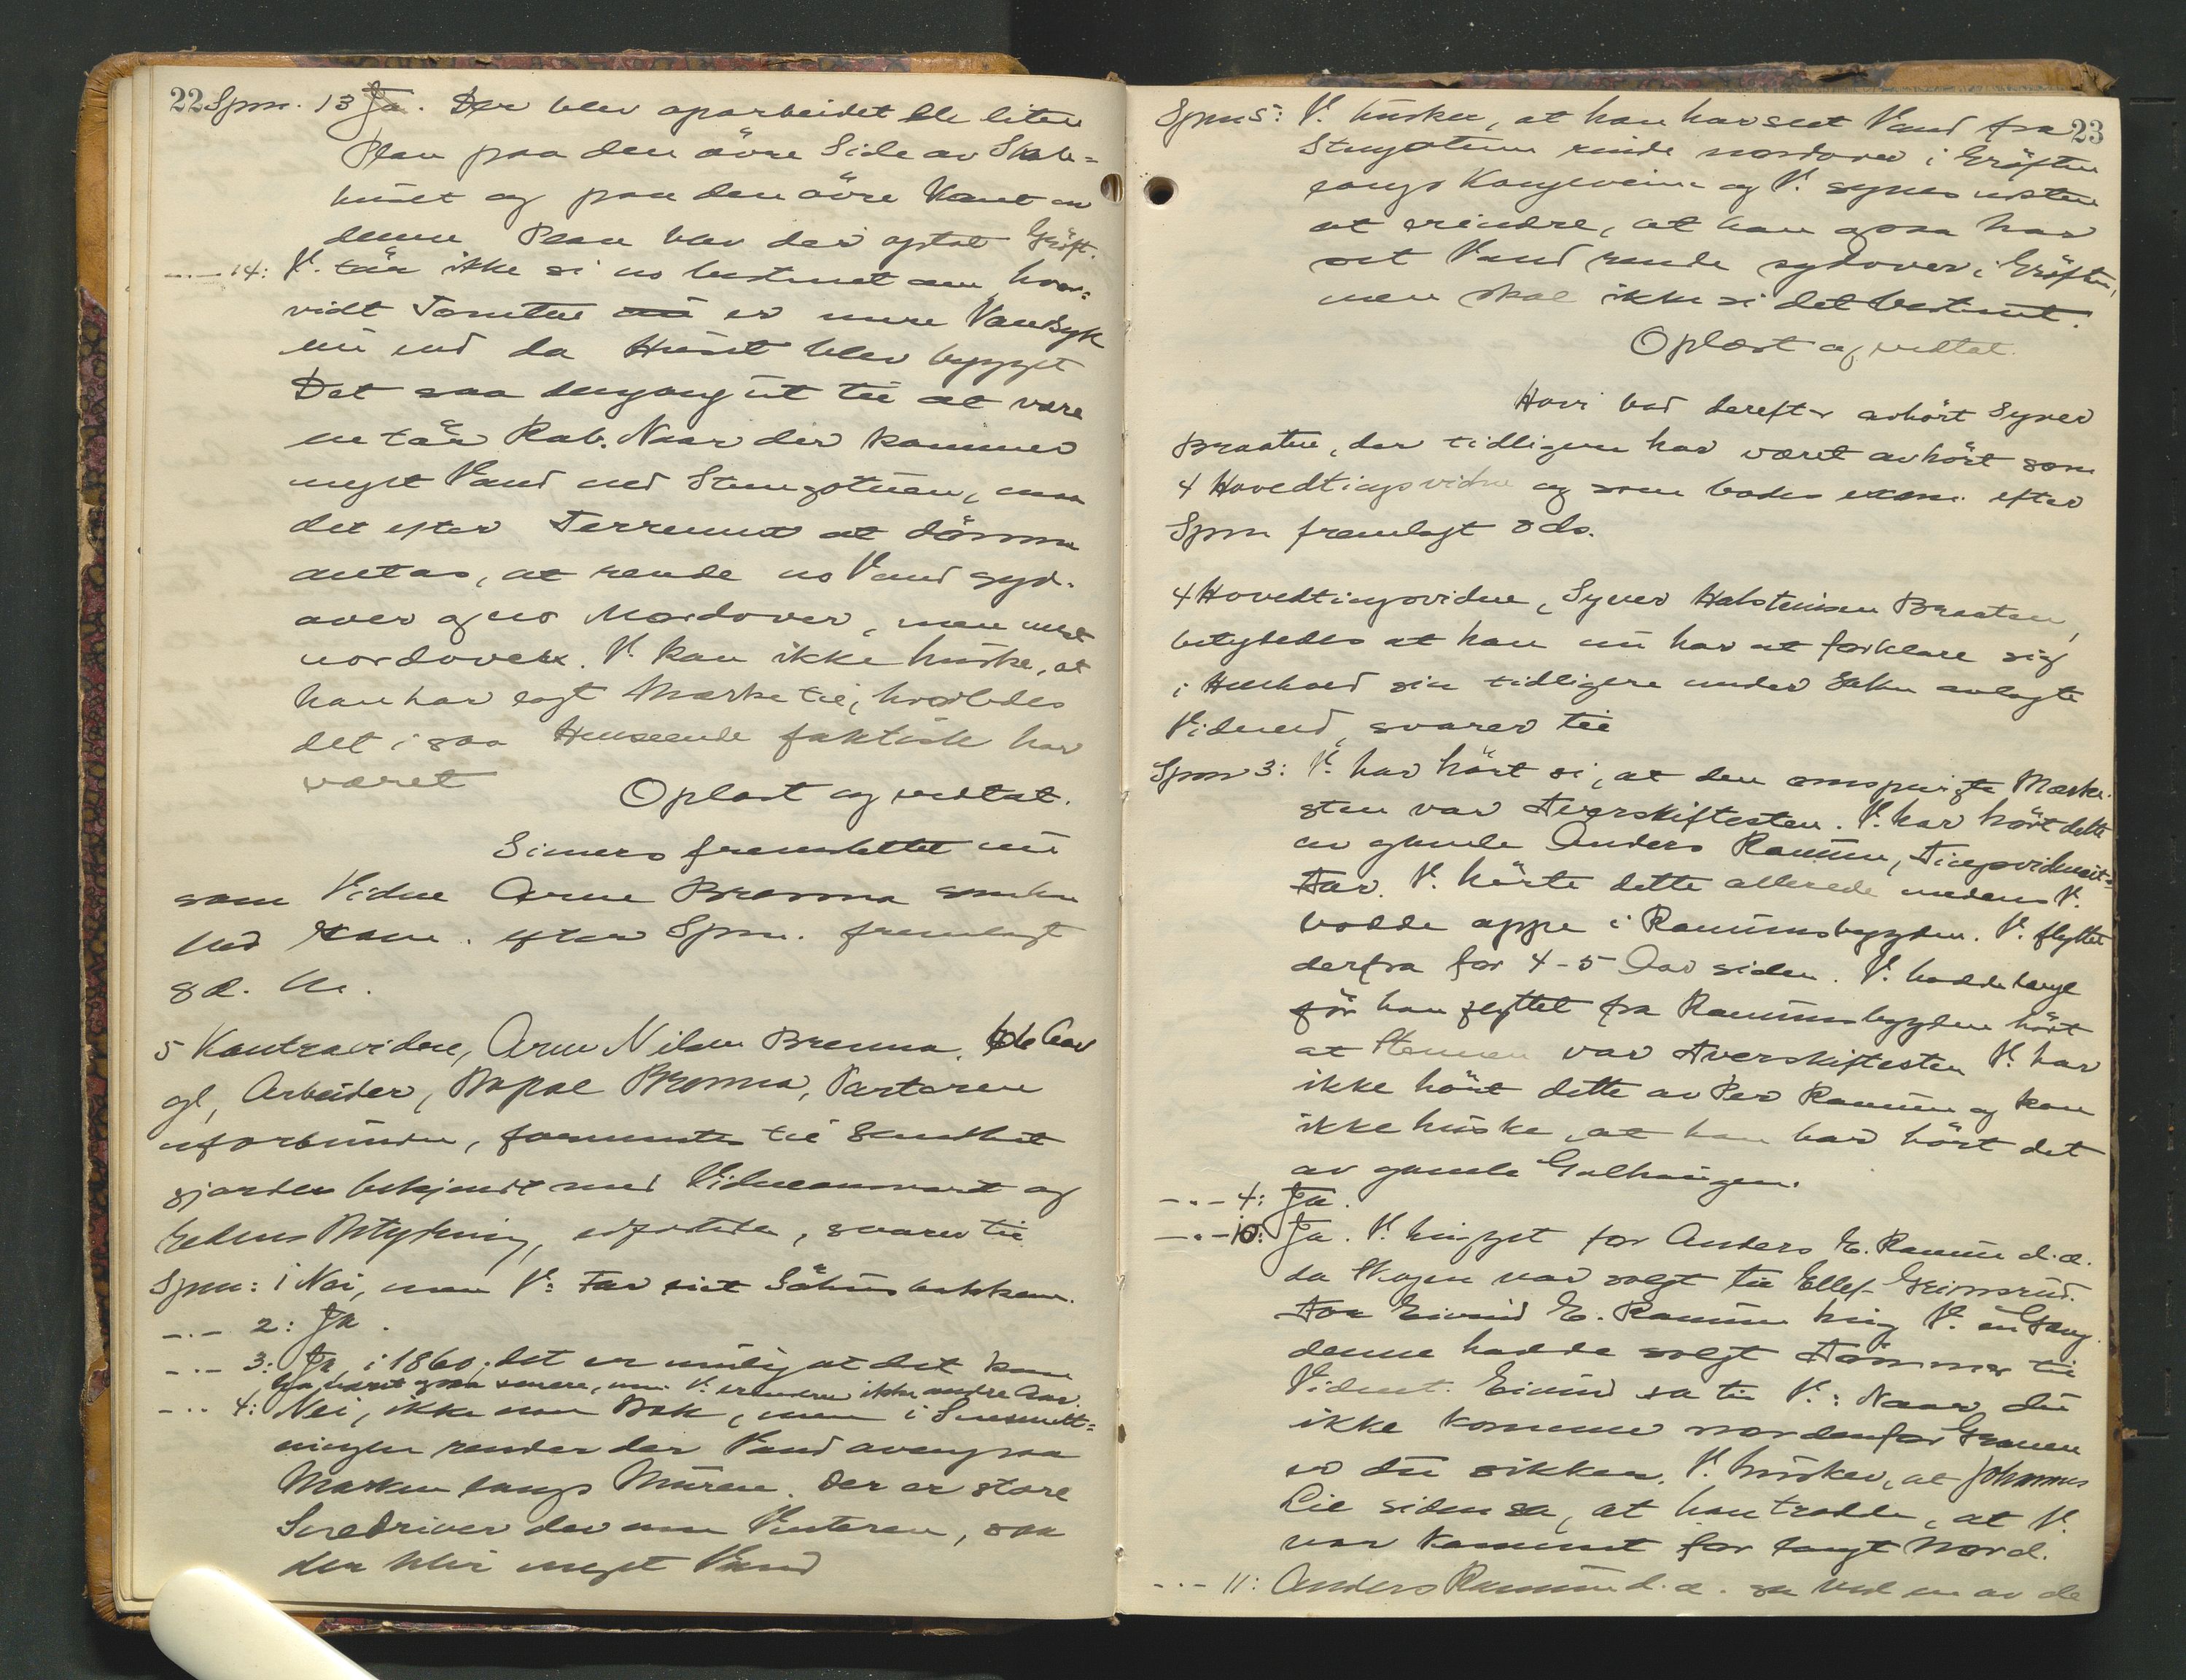 22 Spm. 13 Ja. Der blev oparbeidet en liten
Plan paa den øvre Side av Skole=
huset og paa den øvre Kant av
denne Plan blev der optat Grøft.
-"- 14: V. tør ikke si no bestemt om hvor=
vidt Tomten er mere Vandsyk
nu end da Huset blev bygget
Det saa dengang ut til at være
en tør Rab. Naar der kommer
meget Vand ned Stuegoteien, maa
det efter Terrenget at dømme
antas, at rende no Vand syd-
over og no Nordover, men mest
nordover. V. kan ikke huske, at
han har lagt Mærke til, hvorledes
det i saa Henseende faktisk har
været
Oplæst og vedtat.
Simers fremstillet nu
som Vidne Arne Brenna som
ved exam. efter Spm. fremlagt
s. d. Nr.
5 Kontravidne, Arne Nilsen Brenna, Aar
gl, Arbeider, Bopæl Brenna, Parterne
uforbunden, formantes til Sandhet
gjordes bekjendt med Vidneansvaret og
Edens Betydning, edfæstedes, svarer til
Spm: 1 Nei, men V: har
-"- 2: Ja.
-"- 3: Ja, i 1860; det er mulig at det kan
ha været ogsaa senere, men V. erindrer ikke andre Aar.
-"- 4: Nei, ikke noen Bæk, men i Snesmelt=
ningen render der Vand ovenpaa
Marken langs Muren. Der er store
Snedriver der om Vinteren, saa
der blir meget Vand
23
Spm 5: V. husker, at han har seet Vand fra
rinde nordover i Grøften
langs Kongeveien og V. synes næsten
at erindre, at han ogsaa har
set Vand rende sydover i Grøften,
men skal ikke si det bestemt.
Oplæst og vedtat.
Hovi bad derefter avhørt Syver
Braaten, der tidligere har været avhørt som
4 Hovedtingsvidne og som bades exam. efter
Spm fremlagt s ds.
4 Hovedtingsvidne, Syver Halstensen Braaten,
betydedes at han nu har at forklare sig
i Henhold sin tidligere under Saken avlagte
Vidneed, svarer til
Spm 3: V. har hørt si, at den omspurgte Mærke-
sten var Tverskiftesten. V. har hørt dette
av gamle Anders Ramun, Tingsvidnets
Far. V. hørte dette allerede medens V.
bodde oppe i Ramunsbygden. V. flyttet
derfra for 4-5 Aar siden. V. hadde længe
før han flyttet fra Ramunsbygden hørt
at Stenen var Tverskiftesten V. har
ikke hørt dette av Per Ramun og kan
ikke huske, at han har hørt det
av gamle Galhaugen.
-"- 4: Ja.
-"- 10: Ja. V. hugget for Anders E. Ramun d. æ.
da Skogen var solgt til Ellef Grimsrud.
For Eivind E. Ramun hug V. en Gang.
denne hadde solgt Tømmer til
Vidnet. Eivind sa til V.: Naar du
ikke kommer nordenfor Granen
er du sikker. V. husker, at Johannes
Lie siden sa, at han trodde, at V.
var kommet for langt Nord.
-"- 11: Anders Ramun d. æ. sa ved en av de